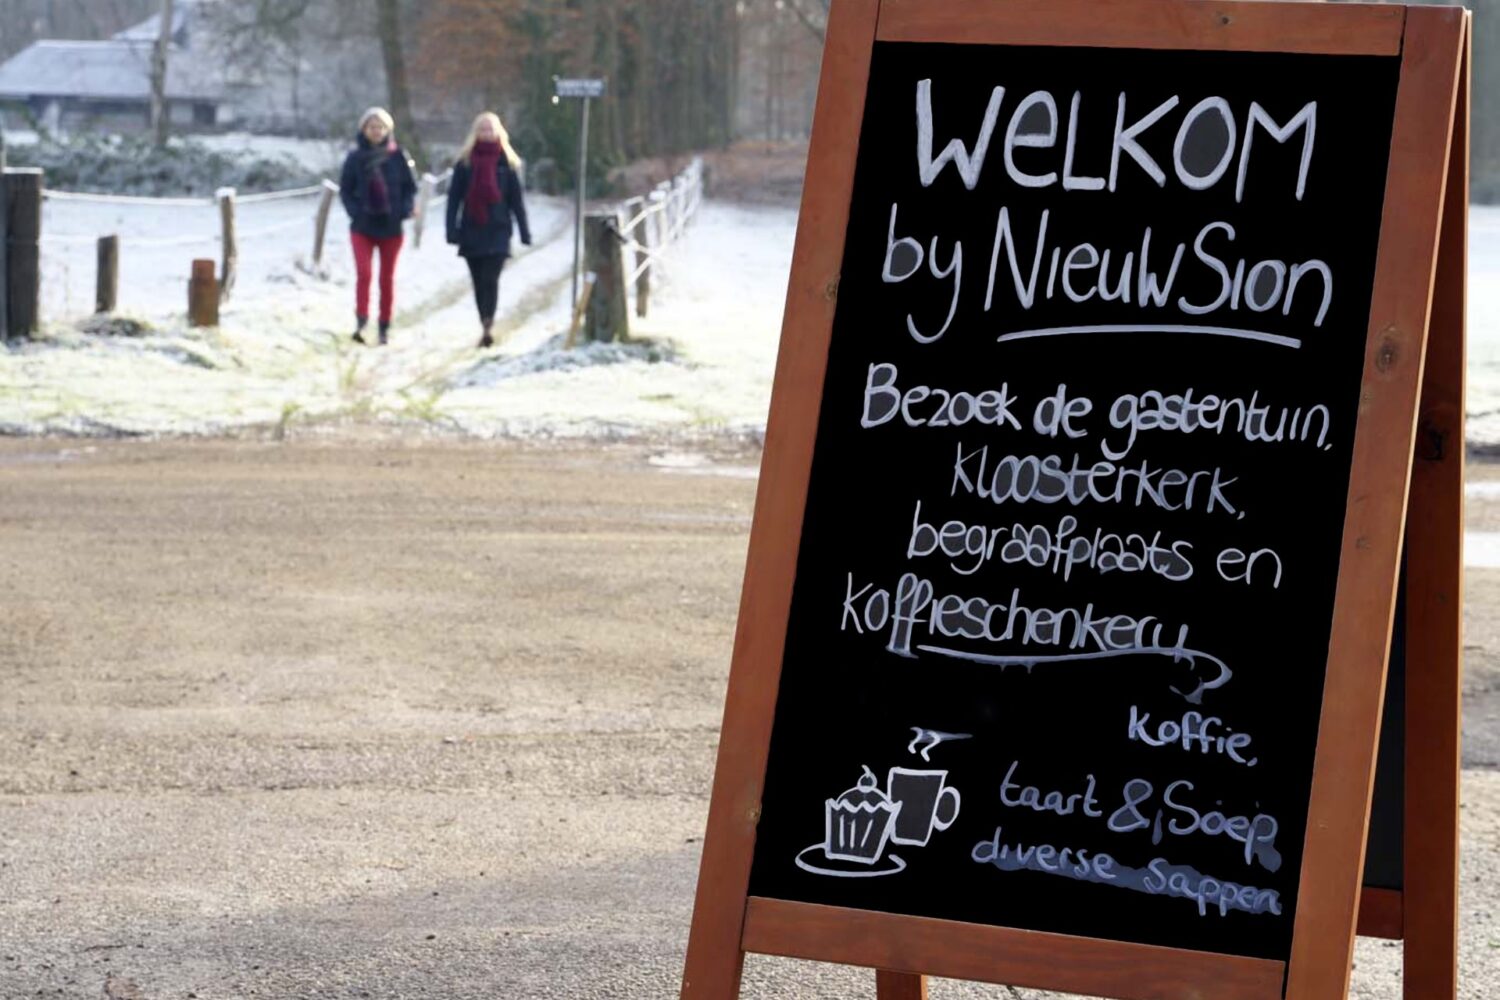 WeLKOM
by NieuwSion
Bezoek de gastentuin,
Kloosterkerk,
begraafplaats en
koffieschenkerij
koffie,
taart & Soep
diverse sappen